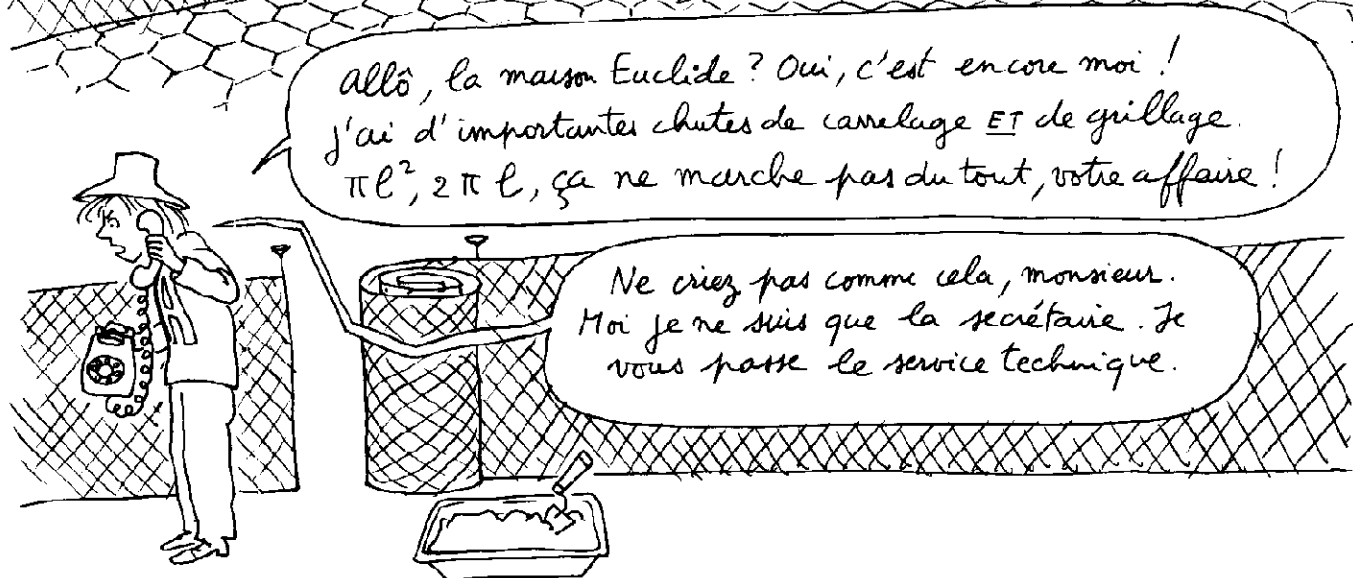 Allô, la maison Euclide ? Oui, c'est encore moi !
j'ai d'importantes chutes de carrelage ET de grillage.
πl², 2πl, ça ne marche pas du tout, votre affaire !
Ne criez pas comme cela, monsieur.
Moi je ne suis que la secrétaire. Je
vous passe le service technique.